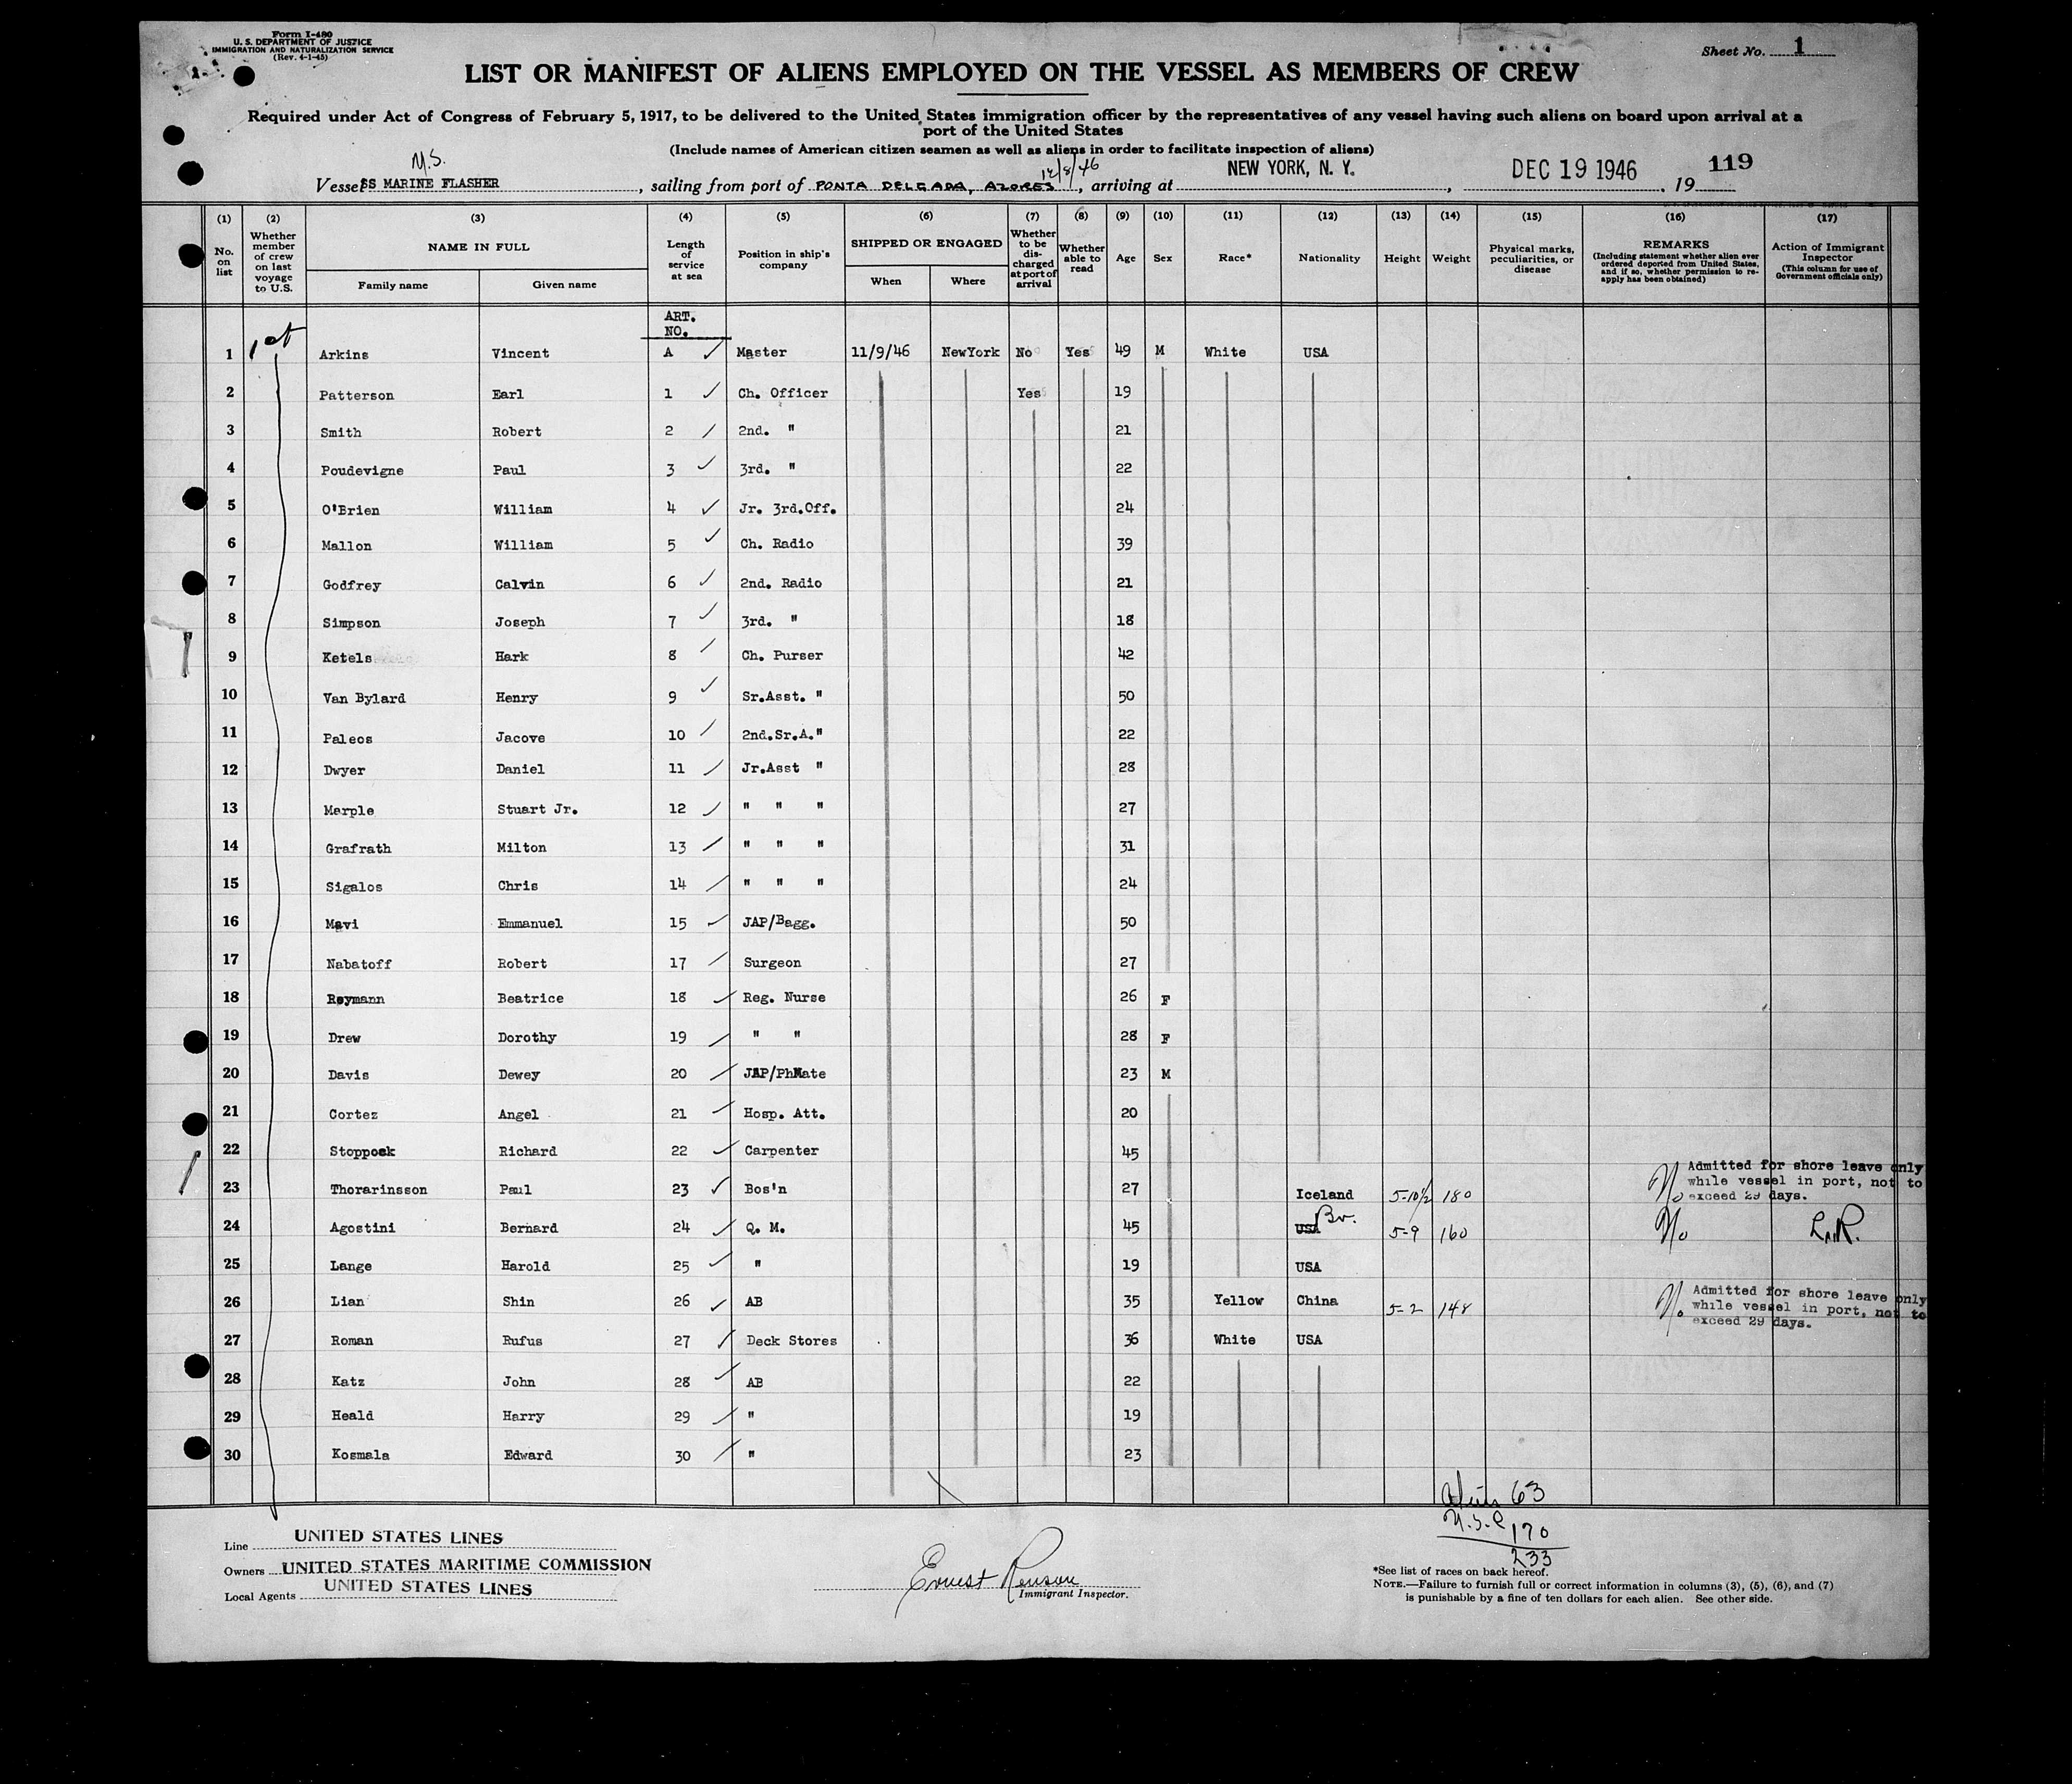 Form I-480
U. S. DEPARTMENT OF JUSTICE
IMMIGRATION AND NATURALIZATION SERVICE
(Rev. 4-1-45)
Sheet No. 1
LIST OR MANIFEST OF ALIENS EMPLOYED ON THE VESSEL AS MEMBERS OF CREW
Required under Act of Congress of February 5, 1917, to be delivered to the United States immigration officer by the representatives of any vessel having such aliens on board upon arrival at a
port of the United States
(Include names of American citizen seamen as well as aliens in order to facilitate inspection of aliens)
M.S. 12/8/46
Vessel SS MARINE FLASHER, sailing from port of PONTA DELGADA, AZORES, arriving at NEW YORK, N. Y., DEC 19 1946, 19 119
(1) No. on list (2) Whether member of crew on last voyage to U.S. (3) NAME IN FULL Family name Given name (4) Length of service at sea (5) Position in ship's company (6) SHIPPED OR ENGAGED When Where (7) Whether to be discharged at port of arrival (8) Whether able to read (9) Age (10) Sex (11) Race* (12) Nationality (13) Height (14) Weight (15) Physical marks, peculiarities, or disease (16) REMARKS (Including statement whether alien ever ordered deported from United States, and if so, whether permission to re-apply has been obtained) (17) Action of Immigrant Inspector (This column for use of Government officials only)
ART.
NO.
1 1st Arkins Vincent A Master 11/9/46 NewYork No Yes 49 M White USA
2 Patterson Earl 1 Ch. Officer Yes 19
3 Smith Robert 2 2nd. " 21
4 Poudevigne Paul 3 3rd. " 22
5 O'Brien William 4 Jr. 3rd.Off. 24
6 Mallon William 5 Ch. Radio 39
7 Godfrey Calvin 6 2nd. Radio 21
8 Simpson Joseph 7 3rd. " 18
9 Ketels Hark 8 Ch. Purser 42
10 Van Bylard Henry 9 Sr.Asst. " 50
11 Paleos Jacove 10 2nd.Sr.A." 22
12 Dwyer Daniel 11 Jr.Asst " 28
13 Marple Stuart Jr. 12 " " " 27
14 Grafrath Milton 13 " " " 31
15 Sigalos Chris 14 " " " 24
16 Mavi Emmanuel 15 JAP/Bagg. 50
17 Nabatoff Robert 17 Surgeon 27
18 Reymann Beatrice 18 Reg. Nurse 26 F
19 Drew Dorothy 19 " " 28 F
20 Davis Dewey 20 JAP/PhMate 23 M
21 Cortez Angel 21 Hosp. Att. 20
22 Stoppock Richard 22 Carpenter 45
23 Thorarinsson Paul 23 Bos'n 27 Iceland 5-10½ 180 No Admitted for shore leave only while vessel in port, not to exceed 29 days.
24 Agostini Bernard 24 Q. M. 45 USA Br. 5-9 160 No L.R.
25 Lange Harold 25 " 19 USA
26 Lian Shin 26 AB 35 Yellow China 5-2 148 No Admitted for shore leave only while vessel in port, not to exceed 29 days.
27 Roman Rufus 27 Deck Stores 36 White USA
28 Katz John 28 AB 22
29 Heald Harry 29 " 19
30 Kosmala Edward 30 " 23
Aliens 63
U.S.C 170
233
Line UNITED STATES LINES
Owners UNITED STATES MARITIME COMMISSION
Local Agents UNITED STATES LINES
Ernest Renson
Immigrant Inspector.
*See list of races on back hereof.
NOTE.—Failure to furnish full or correct information in columns (3), (5), (6), and (7)
is punishable by a fine of ten dollars for each alien. See other side.